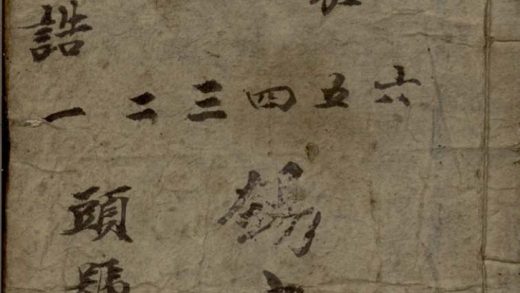 誥
一二三四五六
錫
頭號